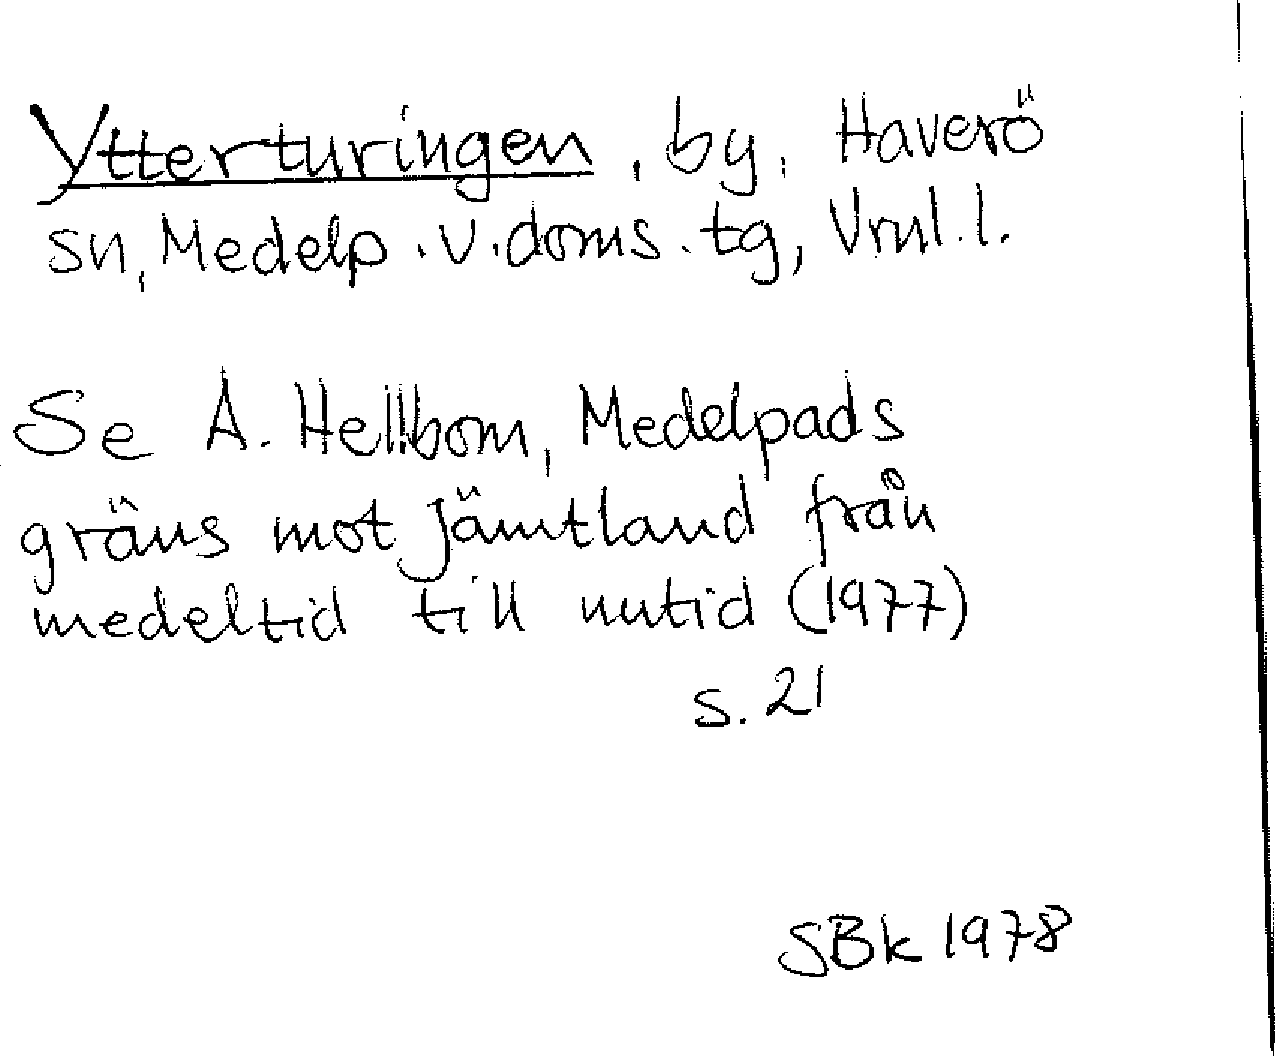 Ytterturingen, by, Haverö
sn, Medelp. v. doms. tg, Vrnl. l.
Se A. Hellbom, Medelpads
gräns mot Jämtland från
medeltid till nutid (1977)
s. 21
SBk 1978